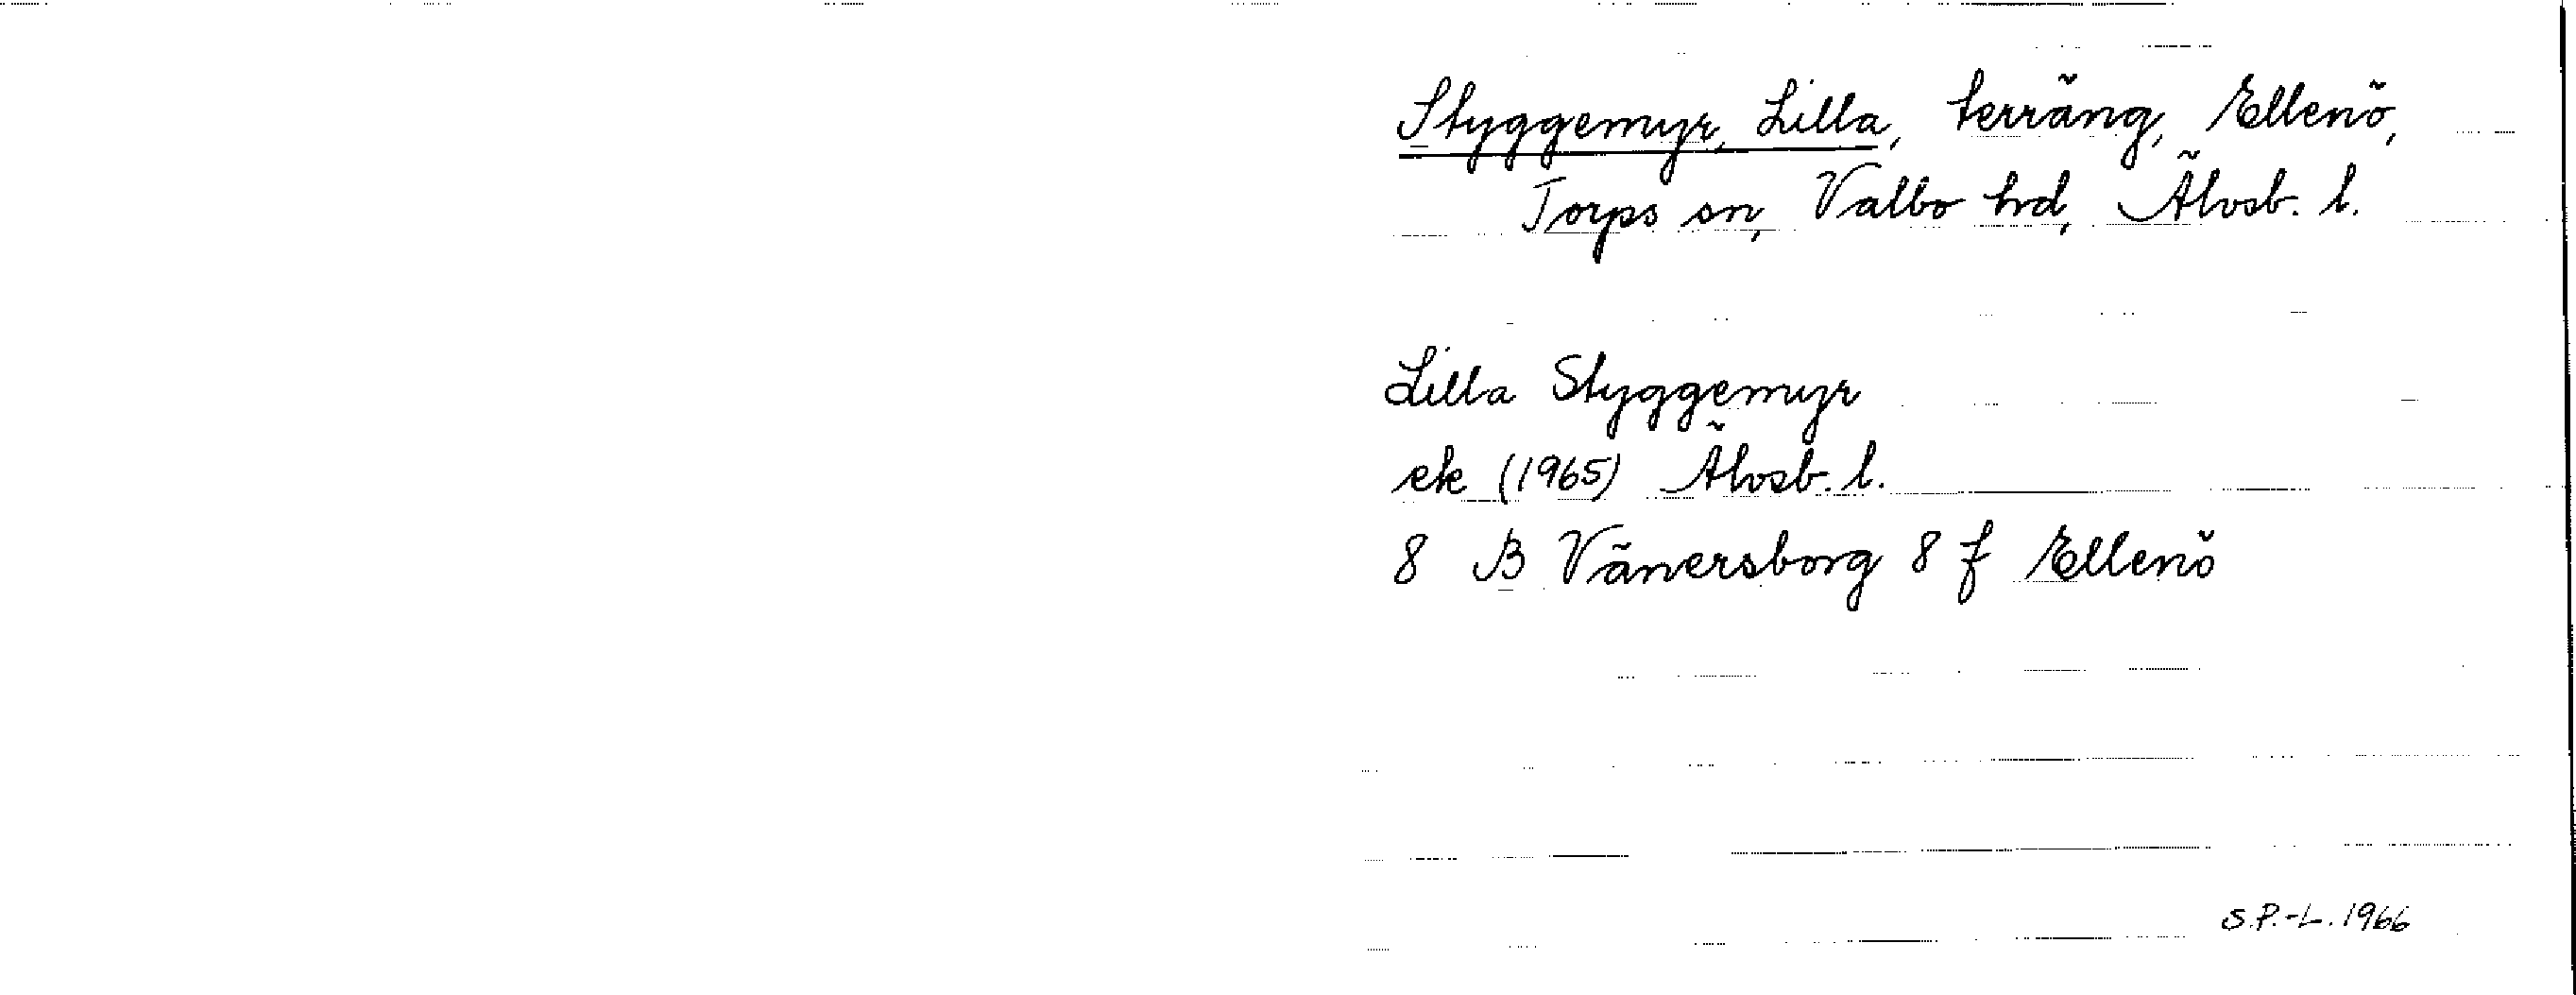 Styggemyr, Lilla, terräng, Ellenö,
Torps sn, Valbo hd, Älvsb. l.
Lilla Styggemyr
ek (1965) Älvsb. l.
8 B Vänersborg 8 f Ellenö
S.P.-L. 1966